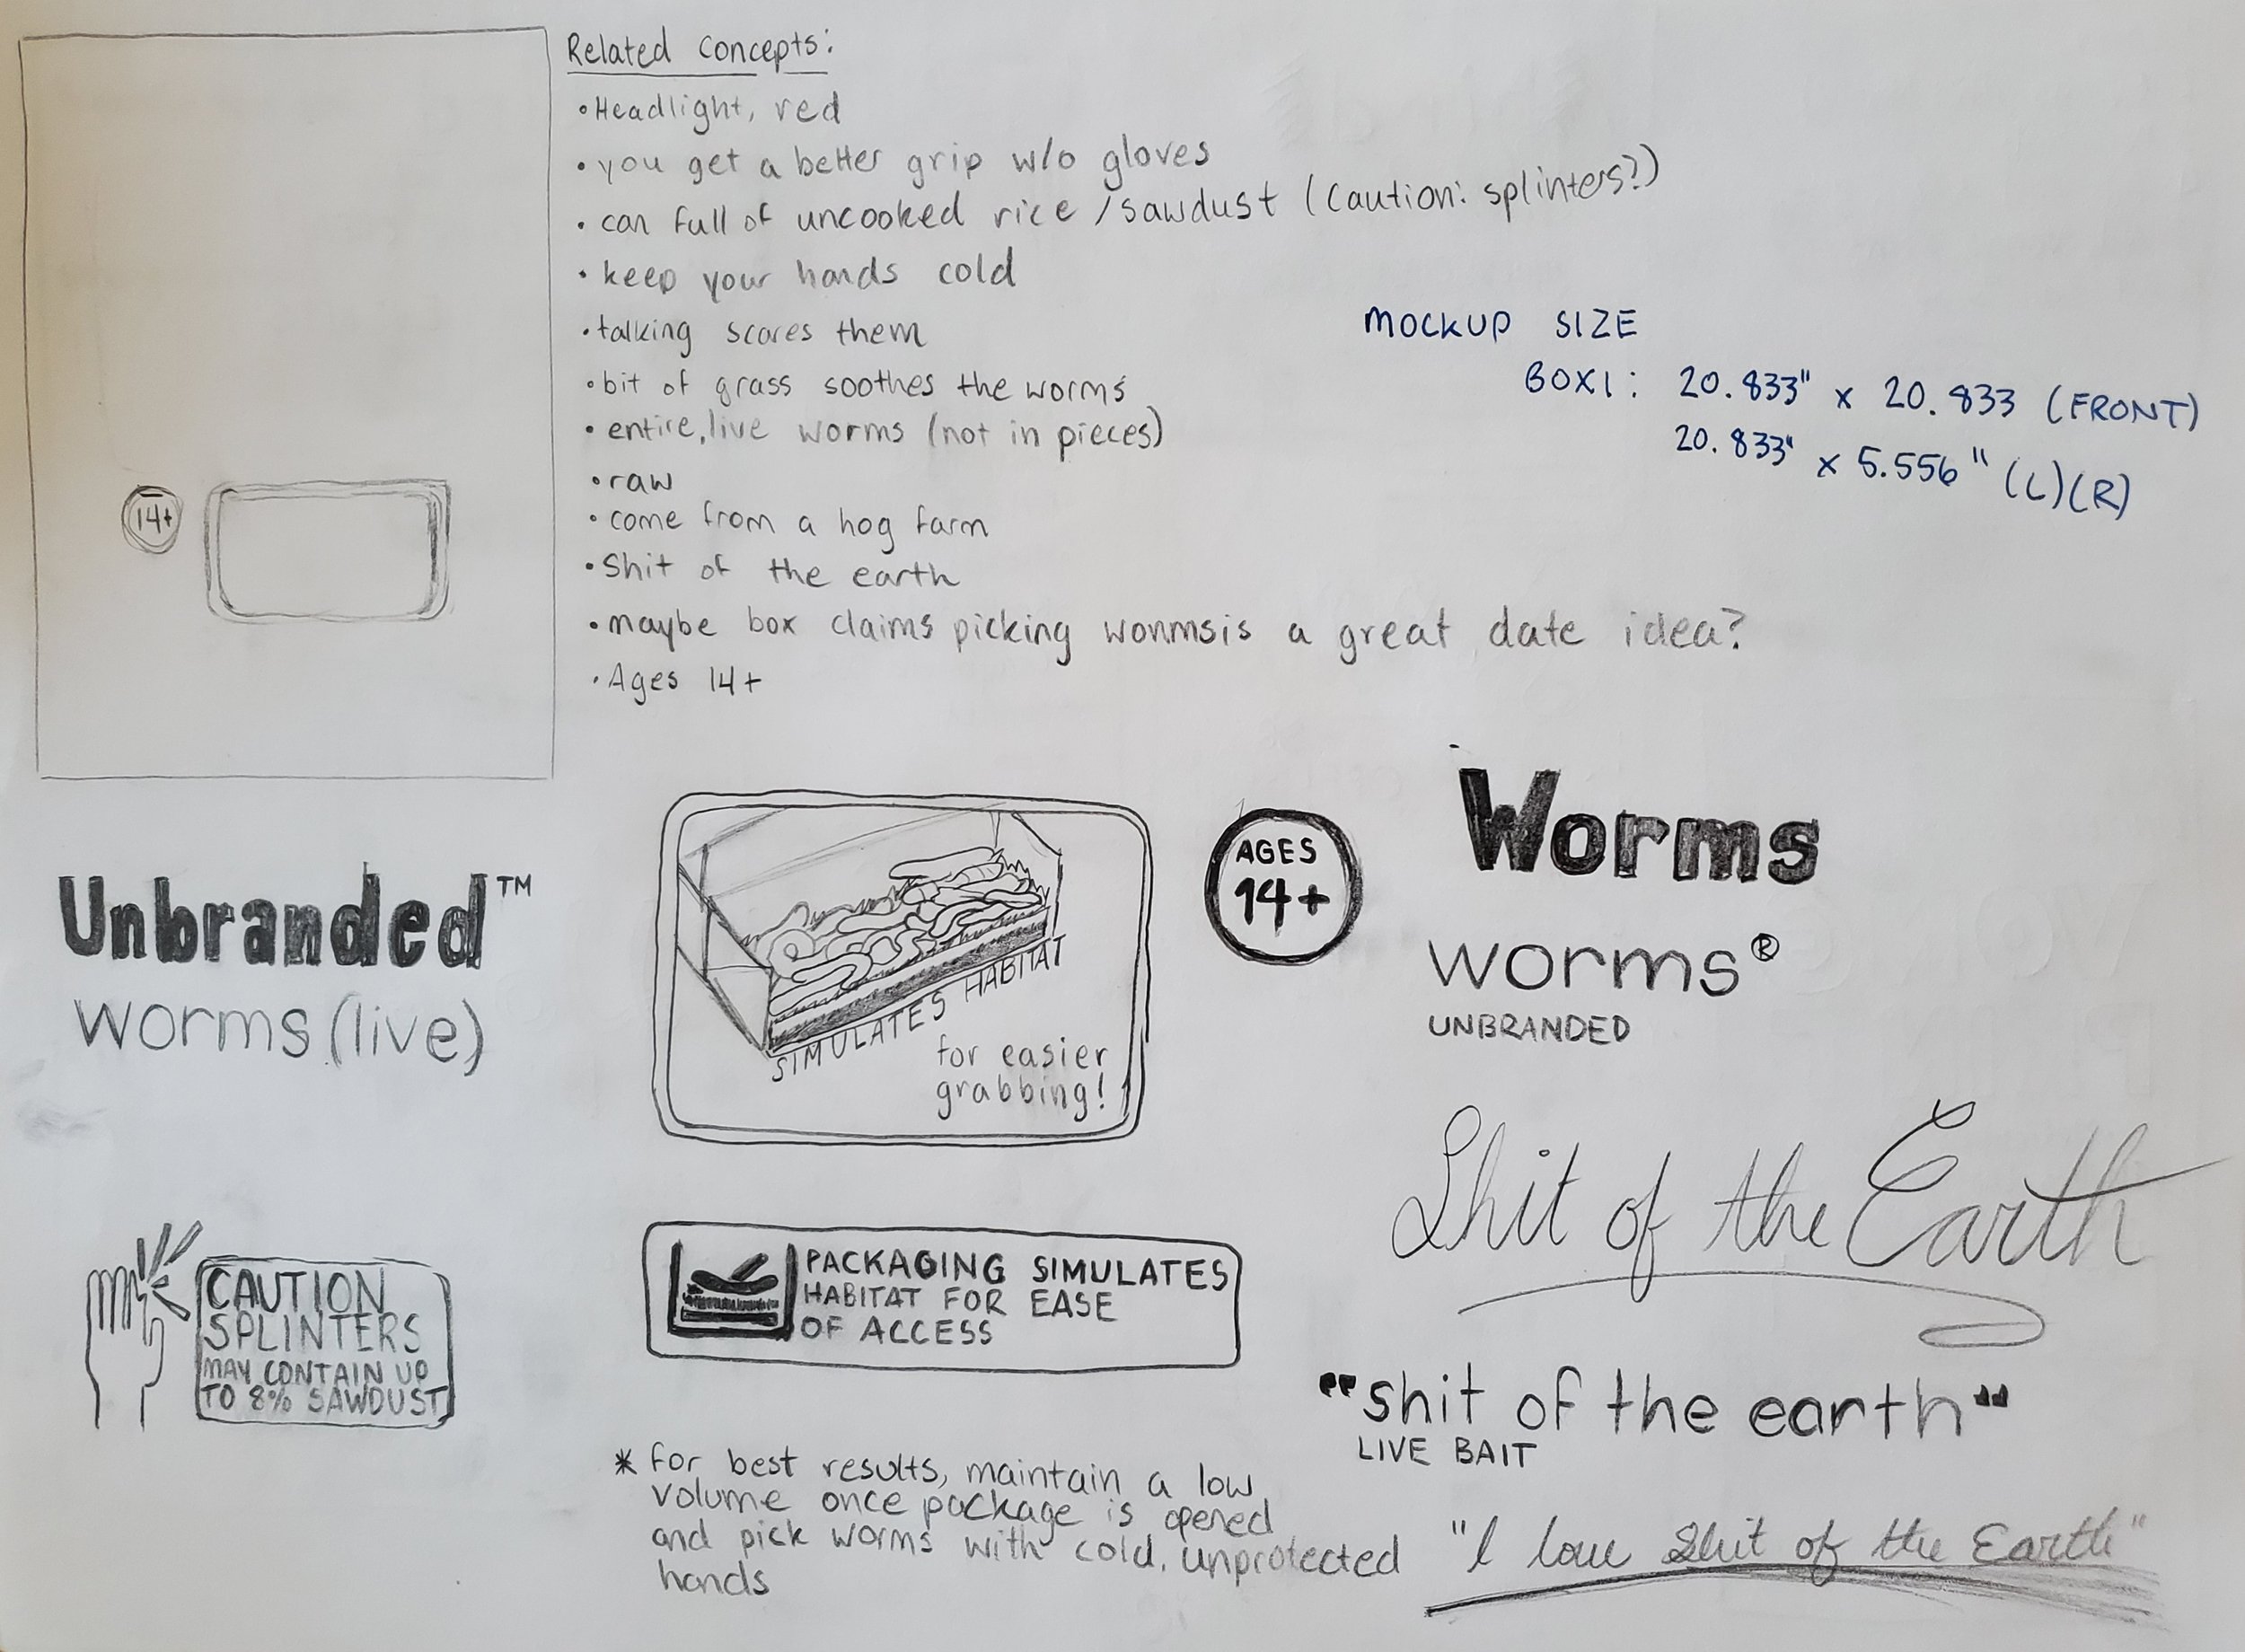 Related Concepts:
•Headlight, red
•you get a better grip w/o gloves
•can full of uncooked rice/sawdust (Caution: splinters?)
•keep your hands cold
•talking scares them
•bit of grass soothes the worms
•entire, live worms (not in pieces)
•raw
•come from a hog farm
•Shit of the earth
•maybe box claims picking wormsis a great date idea?
•Ages 14+
14+
MOCKUP SIZE
BOX1: 20.833" x 20.833 (FRONT)
20.833" x 5.556" (L)(R)
Unbranded™
worms (live)
SIMULATES HABITAT
for easier
grabbing!
AGES
14+
Worms
worms®
UNBRANDED
Shit of the Earth
CAUTION
SPLINTERS
MAY CONTAIN UP
TO 8% SAWDUST
PACKAGING SIMULATES
HABITAT FOR EASE
OF ACCESS
"shit of the earth"
LIVE BAIT
* for best results, maintain a low
volume once package is opened
and pick worms with cold, unprotected
hands
"I love Shit of the Earth"